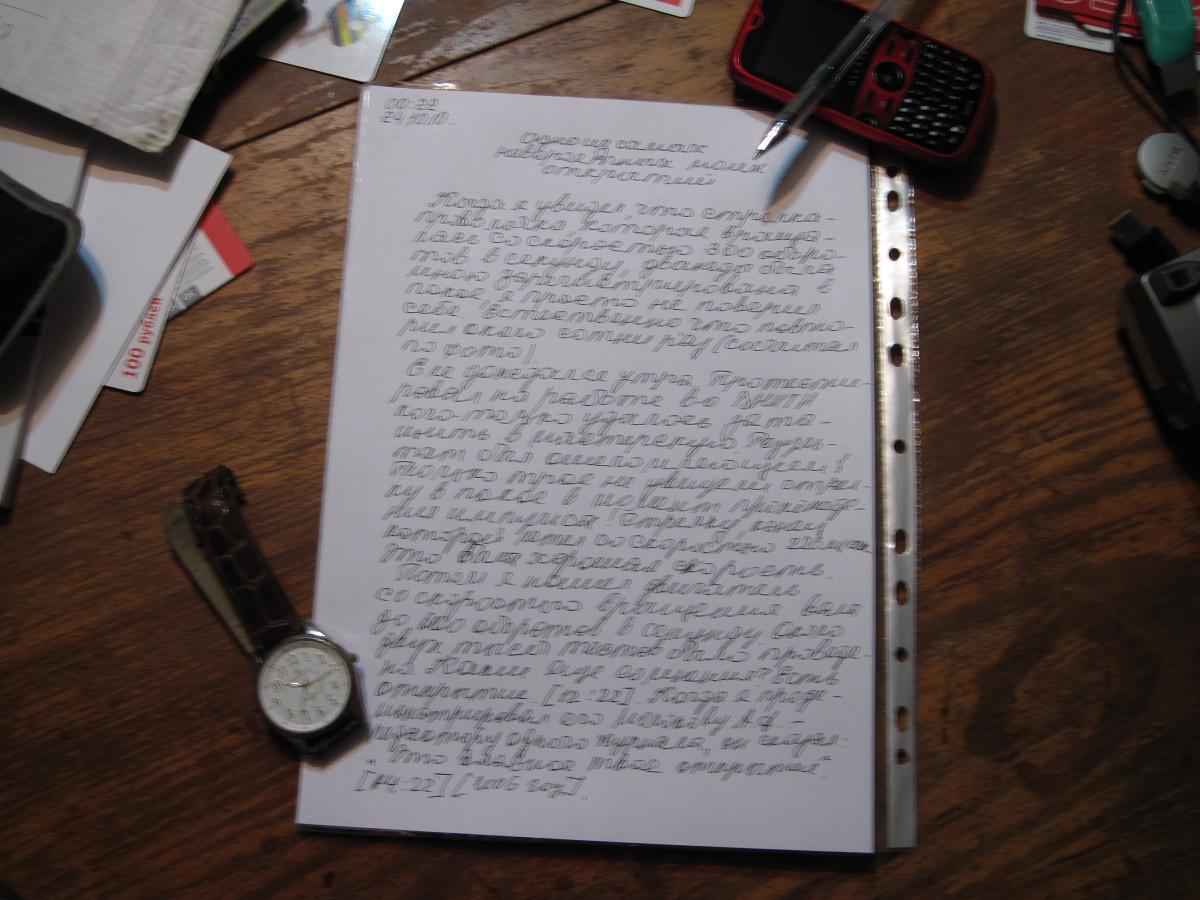 00:22
24.10.10.
Одно из самых
навероядных моих
открытий
Когда я увидел, что стрелка-
проволока, которая враща-
лась со скоростью 300 оборо-
тов в секунду, дважды была
мною зарегистрирована в
покое я просто не поверил
себе. Естественно что повто-
рил около сотни раз (сосчитал
по фото).
Еле дождался утра. Протестии-
ровал на работе во
кого-только удалось зата-
щить в мастерскую. Резуль-
тат был ошеломляющем!
только трое не увидели стрел-
ку в покое в момент прохожде-
ния импульса! Стрелку, конец
которой летел со скоростью
Это была хорошая скорость.
Потом я нашел двигатель
со скоростью вращения вала
до 600 оборотов в секунду. Около
двух тысяч тестов было проведе-
но. Какие еще сомнения? Есть
открытие. [12:22]. Когда я проде-
монстрировал его А.Ф. -
редактору одного журнала, он сказал:
"Это главное твое открытие".
[14:22] [2006 год].
100 рублей